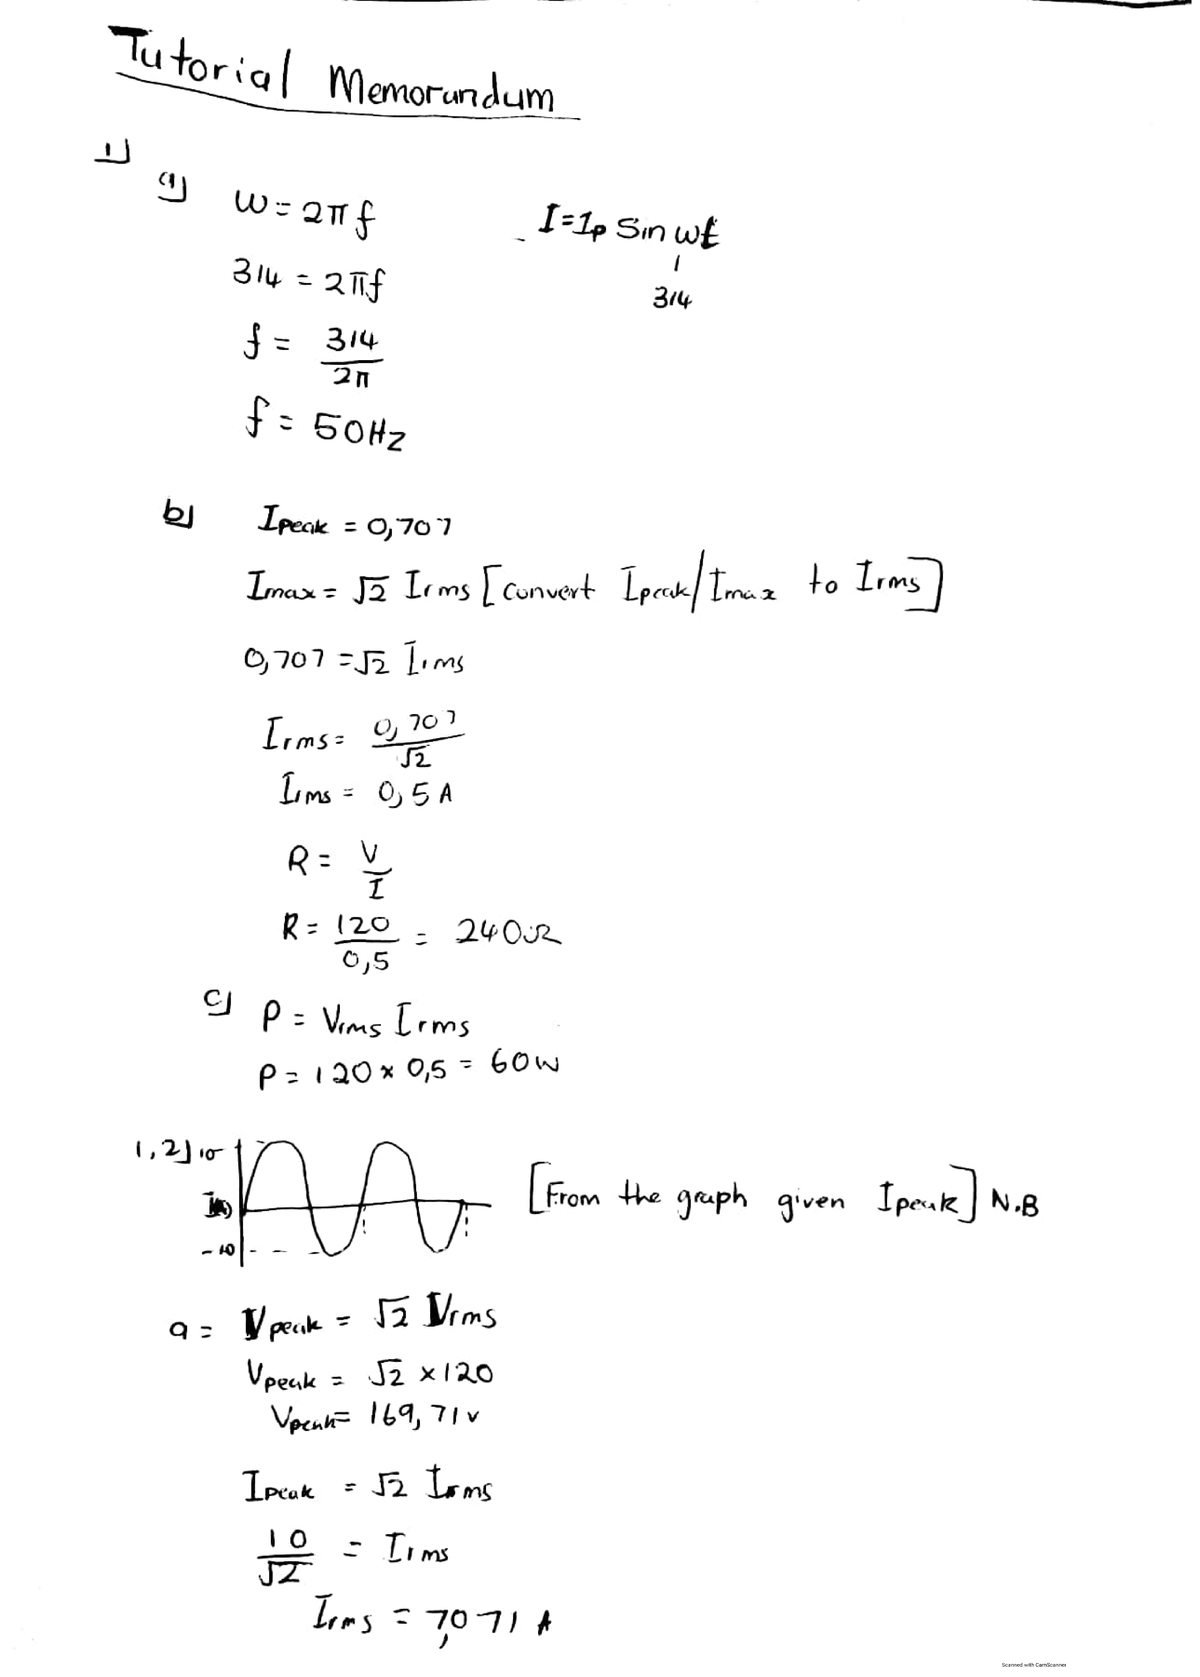 Tutorial Memorandum
1)
a) ω = 2πf
I = Ip Sin ωt
314 = 2πf
314
f = 314/2π
f = 50Hz
b) Ipeak = 0,707
Imax = √2 Irms [convert Ipeak/Imax to Irms]
0,707 = √2 Irms
Irms = 0,707/√2
Irms = 0,5 A
R = V/I
R = 120/0,5 = 240Ω
c) P = Vrms Irms
P = 120 × 0,5 = 60W
1,2) 10
[From the graph given Ipeak] N.B
-10
a = Vpeak = √2 Vrms
Vpeak = √2 × 120
Vpeak = 169,71v
Ipeak = √2 Irms
10/√2 = Irms
Irms = 7,071 A
Scanned with CamScanner